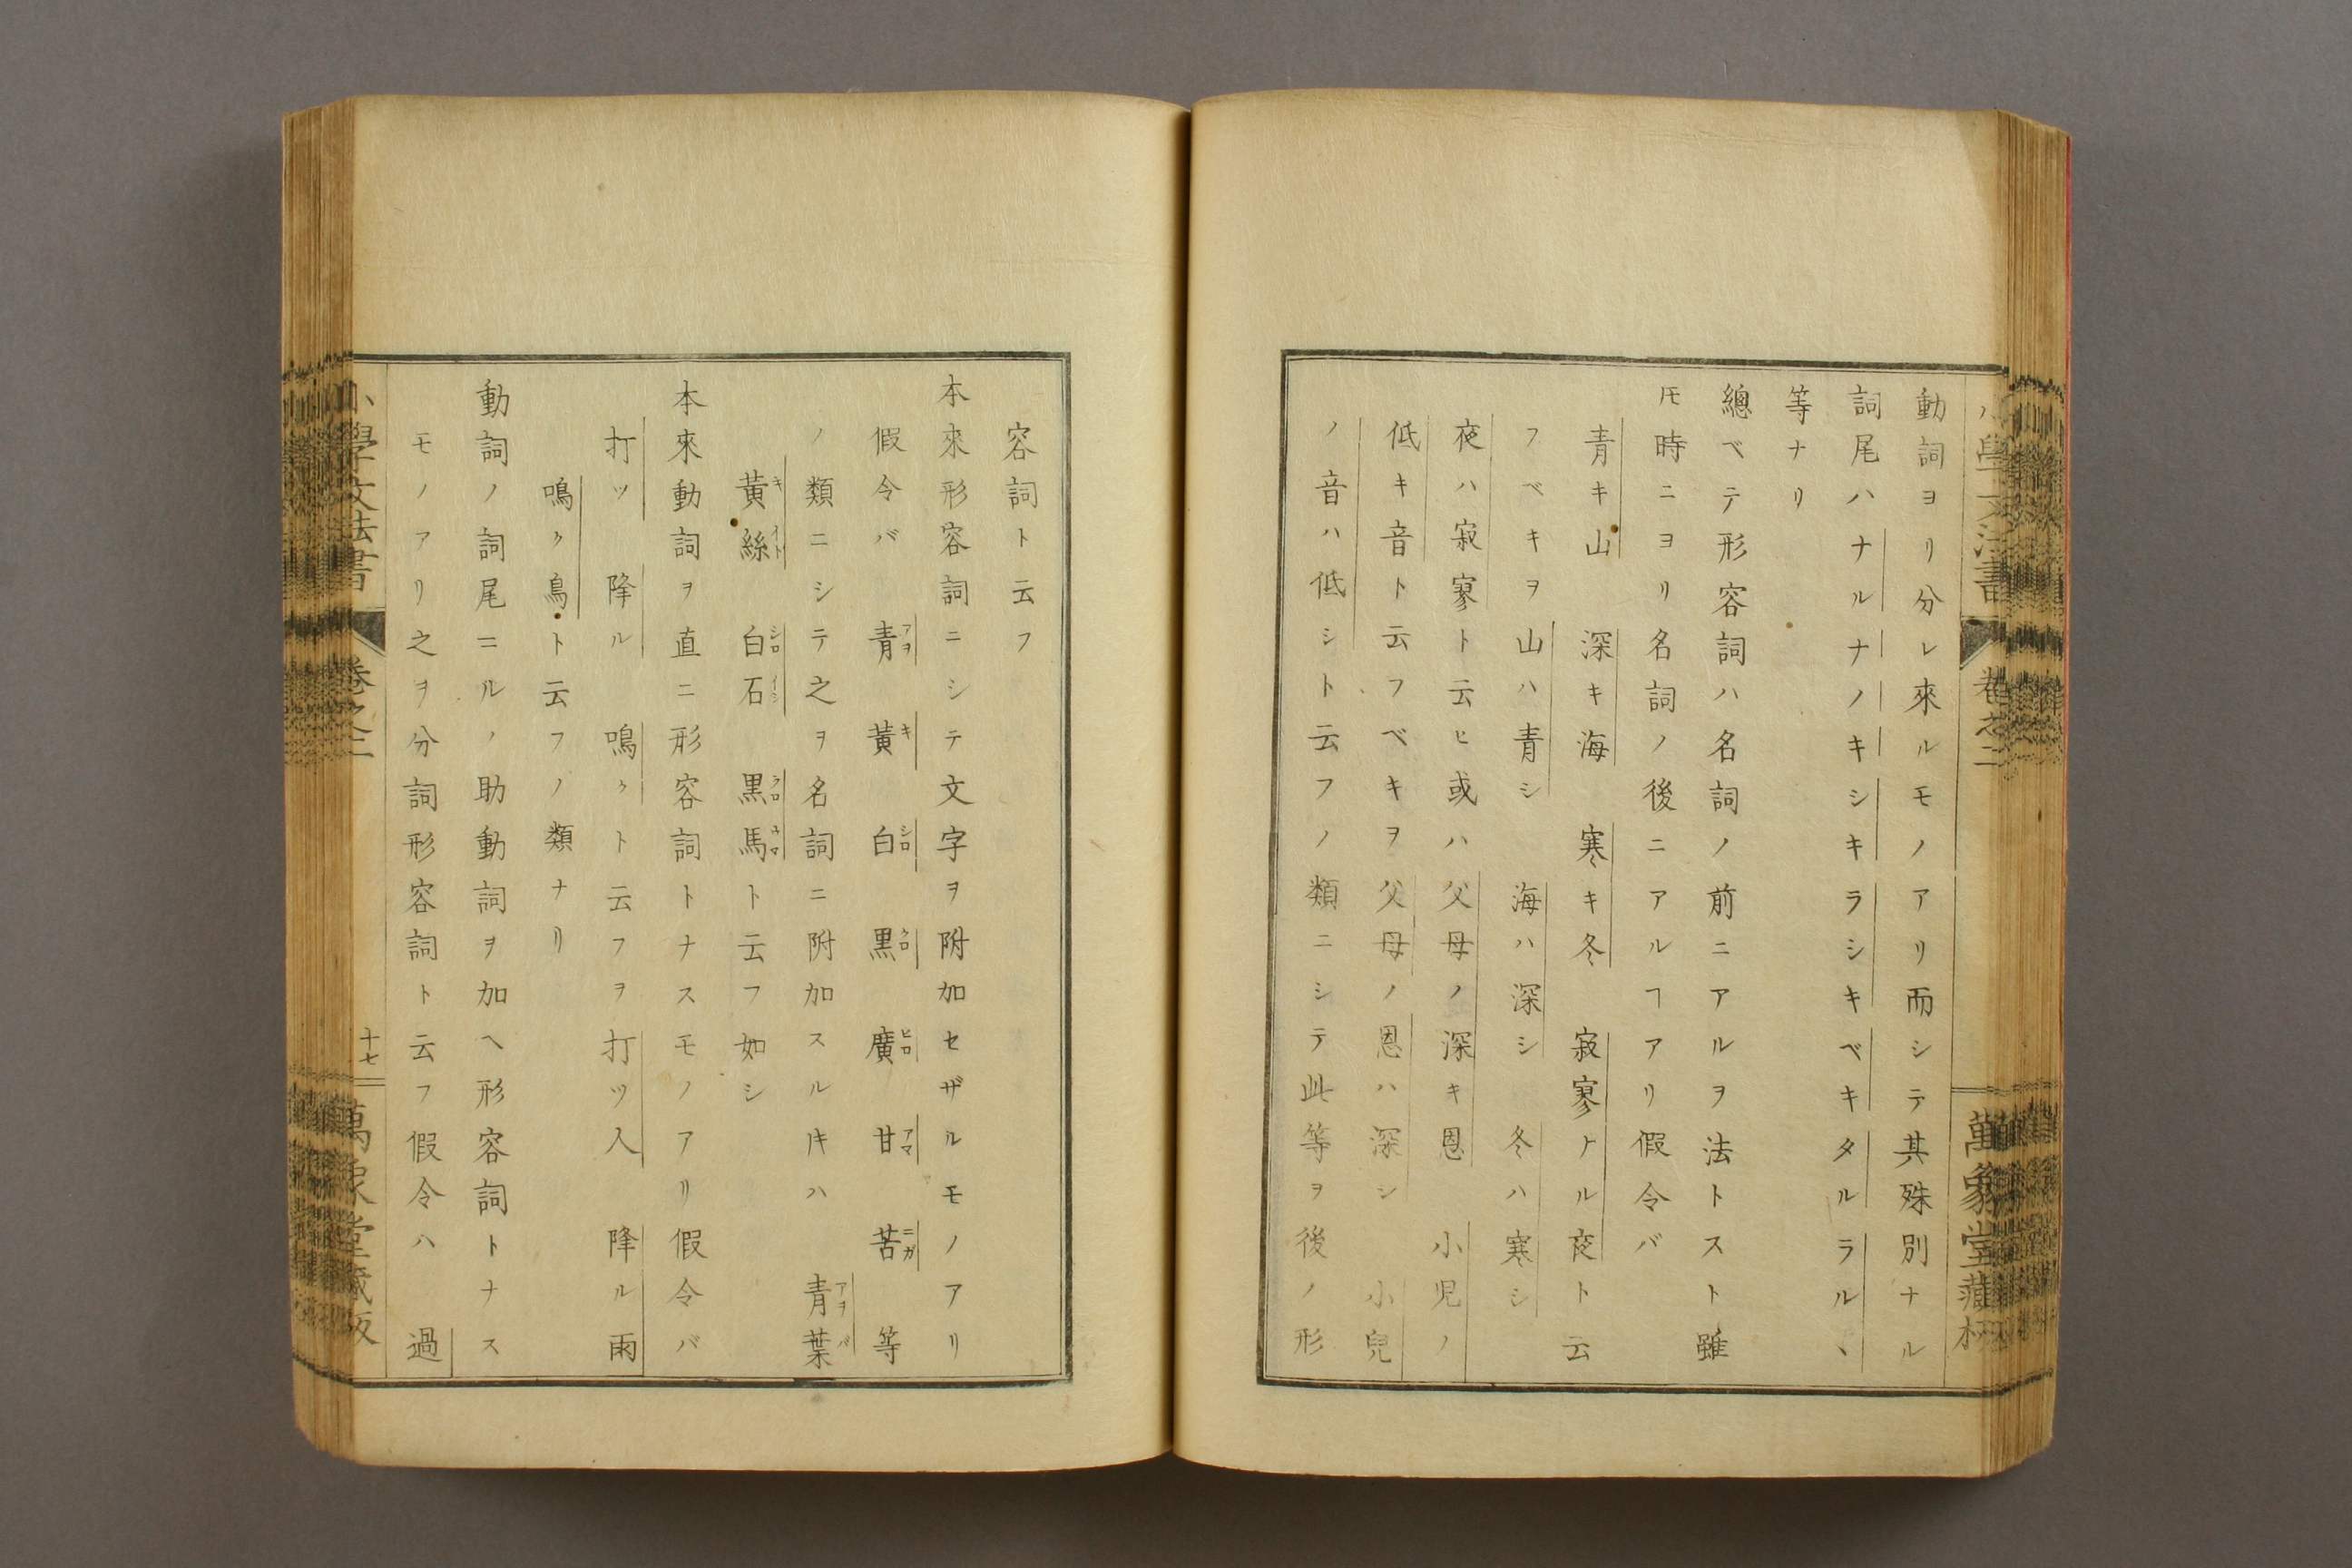 動詞ヨリ分レ來ルモノアリ而シテ其殊別ナル
詞尾ハナルナノキシキラシキベキタルラルヽ
等ナリ
總ベテ形容詞ハ名詞ノ前ニアルヲ法トスト雖
𪜈時ニヨリ名詞ノ後ニアルヿアリ假令バ
青キ山 深キ海 寒キ冬 寂寥ナル夜ト云
フベキヲ山ハ青シ 海ハ深シ 冬ハ寒シ
夜ハ寂寥ト云ヒ或ハ父母ノ深キ恩 小児ノ
低キ音ト云フベキヲ父母ノ恩ハ深シ 小兒
ノ音ハ低シト云フノ類ニシテ此等ヲ後ノ形
小學文法書 卷之二 萬象堂藏板
容詞ト云フ
本來形容詞ニシテ文字ヲ附加セザルモノアリ
假令バ 青アヲ 黃キ 白シロ 黒クロ 廣ヒロ 甘アマ 苦ニガ 等
ノ類ニシテ之ヲ名詞ニ附加スル𪜈ハ 青葉アヲバ
黃絲キイト 白石シロイシ 黒馬クロウマト云フ如シ
本來動詞ヲ直ニ形容詞トナスモノアリ假令バ
打ツ 降ル 鳴クト云フヲ打ツ人 降ル雨
鳴ク鳥ト云フノ類ナリ
動詞ノ詞尾ニルノ助動詞ヲ加ヘ形容詞トナス
モノアリ之ヲ分詞形容詞ト云フ假令ハ 過
小學文法書 卷之二 十七 萬象堂藏版